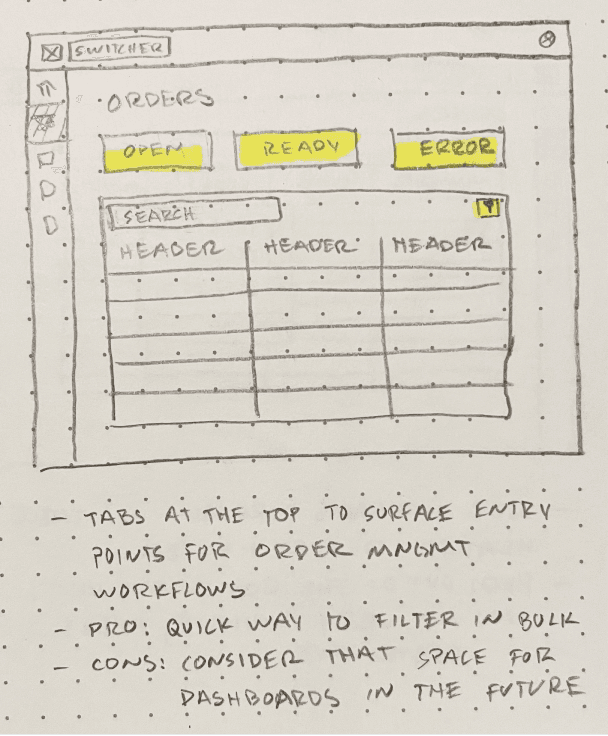 SWITCHER
ORDERS
OPEN READY ERROR
SEARCH
HEADER HEADER HEADER
- TABS AT THE TOP TO SURFACE ENTRY
POINTS FOR ORDER MNGMT
WORKFLOWS
- PRO: QUICK WAY TO FILTER IN BULK
- CONS: CONSIDER THAT SPACE FOR
DASHBOARDS IN THE FUTURE